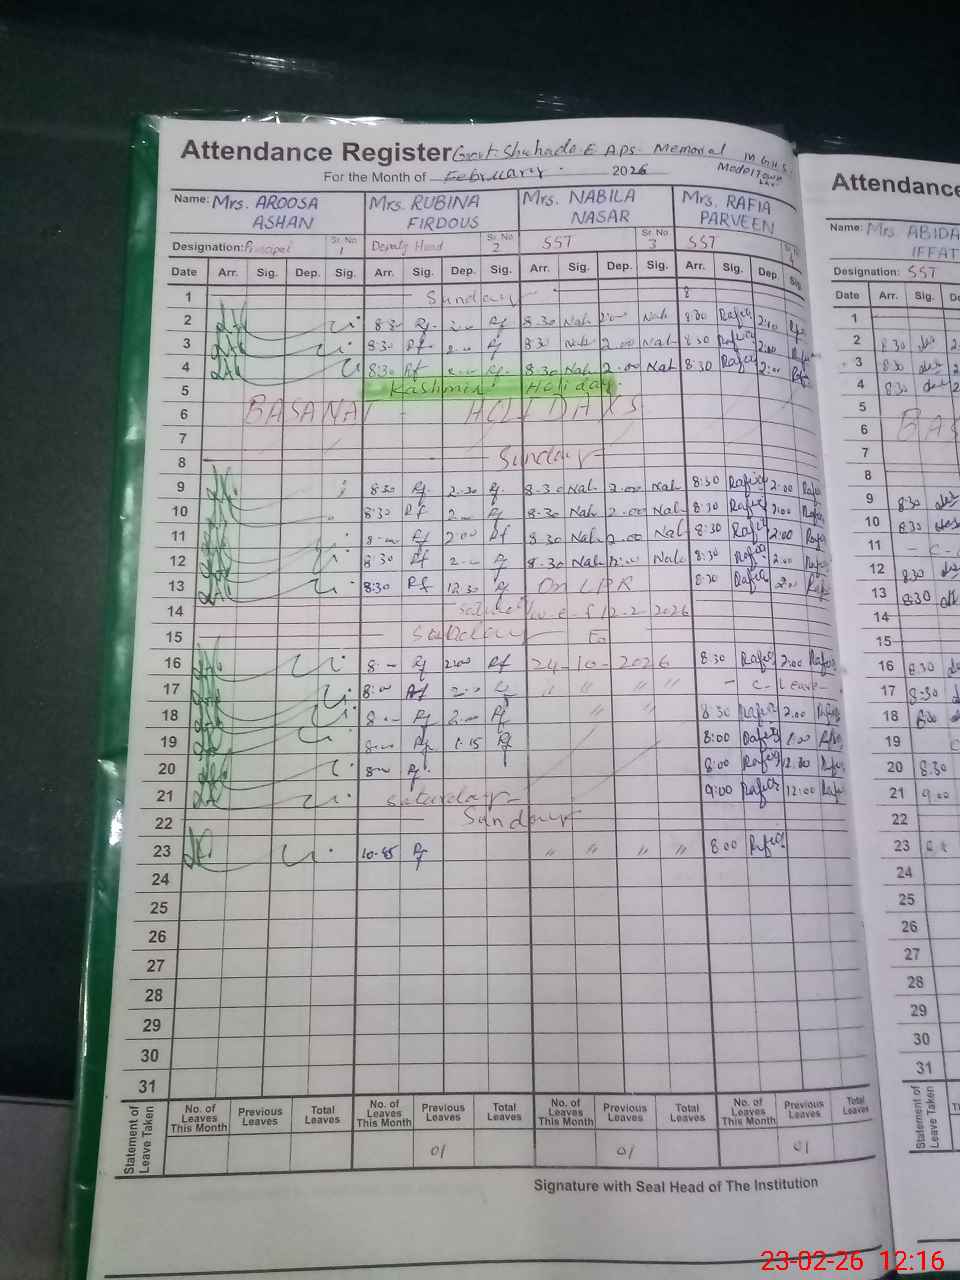 Attendance Register Govt. Shuhada-E APS. Memorial M.G.H.S.
For the Month of February 2026 Model Town
Name: Mrs. AROOSA ASHAN Mrs. RUBINA FIRDOUS Mrs. NABILA NASAR Mrs. RAFIA PARVEEN
Designation: Principal Sr. No 1 Deputy Head Sr. No 2 SST Sr. No 3 SST Sr. No
Date Arr. Sig. Dep. Sig. Arr. Sig. Dep. Sig. Arr. Sig. Dep. Sig. Arr. Sig. Dep. Sig.
1 Sunday
2 8:30 Rf 2:00 Rf 8.30 Nah 2:00 Nah 8:30 Rafia 2:00
3 8:30 Rf 2:00 Rf 8:30 Nah 2.00 Nah 8:30 Rafia 2:00
4 8:30 Rf 2:00 Rf 8.30 Nah 2.00 Nah 8:30 Rafia 2:00
5 Kashmir Holiday
6 BASANAT HOLIDAYS
7
8 Sunday
9 8:30 Rf 2:30 Rf 8-30 Nah 2.00 Nah 8:30 Rafia 2:00 Rafia
10 8:30 Rf 2:00 Rf 8-30 Nah 2.00 Nah 8:30 Rafia 2:00 Rafia
11 8:00 Rf 2:00 Rf 8.30 Nah 2.00 Nah 8:30 Rafia 2:00 Rafia
12 8:30 Rf 2:00 Rf 8.30 Nah 2:00 Nah 8:30 Rafia 2:00 Rafia
13 8:30 Rf 12:30 Rf On LPR 8:30 Rafia
14 Saturday w.e.f 12-2-2026
15 Sunday To
16 8:00 Rf 2:00 Rf 24-10-2026 8:30 Rafia 2:00 Rafia
17 8:00 Rf 2:00 Rf 〃 〃 〃 〃 - C-Leave-
18 8:00 Rf 2:00 Rf 〃 〃 8:30 Rafia 2:00 Rafia
19 8:00 Rf 1:15 Rf 8:00 Rafia 1:00 Rafia
20 8:00 Rf 8:00 Rafia 12:30 Rafia
21 Saturday 9:00 Rafia 12:00 Rafia
22 Sunday
23 10-45 Rf 〃 〃 〃 〃 8:00 Rafia
24
25
26
27
28
29
30
31
Statement of Leave Taken
No. of Leaves This Month Previous Leaves Total Leaves No. of Leaves This Month Previous Leaves Total Leaves No. of Leaves This Month Previous Leaves Total Leaves No. of Leaves This Month Previous Leaves Total Leaves
01 01 01
Signature with Seal Head of The Institution
Attendance
Name: Mrs ABIDA
IFFAT
Designation: SST
Date Arr. Sig.
1
2 8:30
3 8:30
4 8:30
5
6 BAS
7
8
9 8:30
10 8:30
11 - C-
12 8:30
13 8:30
14
15
16 8:30
17 8:30
18 8:30
19
20 8:30
21 9:00
22
23
24
25
26
27
28
29
30
31
Statement of Leave Taken
23-02-26 12:16